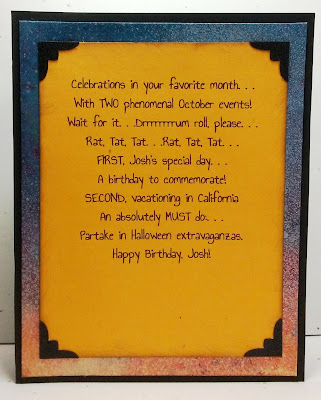 Celebrations in your favorite month. . .
With TWO phenomenal October events!
Wait for it. . .Drrrrrrrum roll, please. . .
Rat, Tat, Tat. . .Rat, Tat, Tat. . .
FIRST, Josh's special day. . .
A birthday to commemorate!
SECOND, vacationing in California
An absolutely MUST do. . .
Partake in Halloween extravaganzas.
Happy Birthday, Josh!